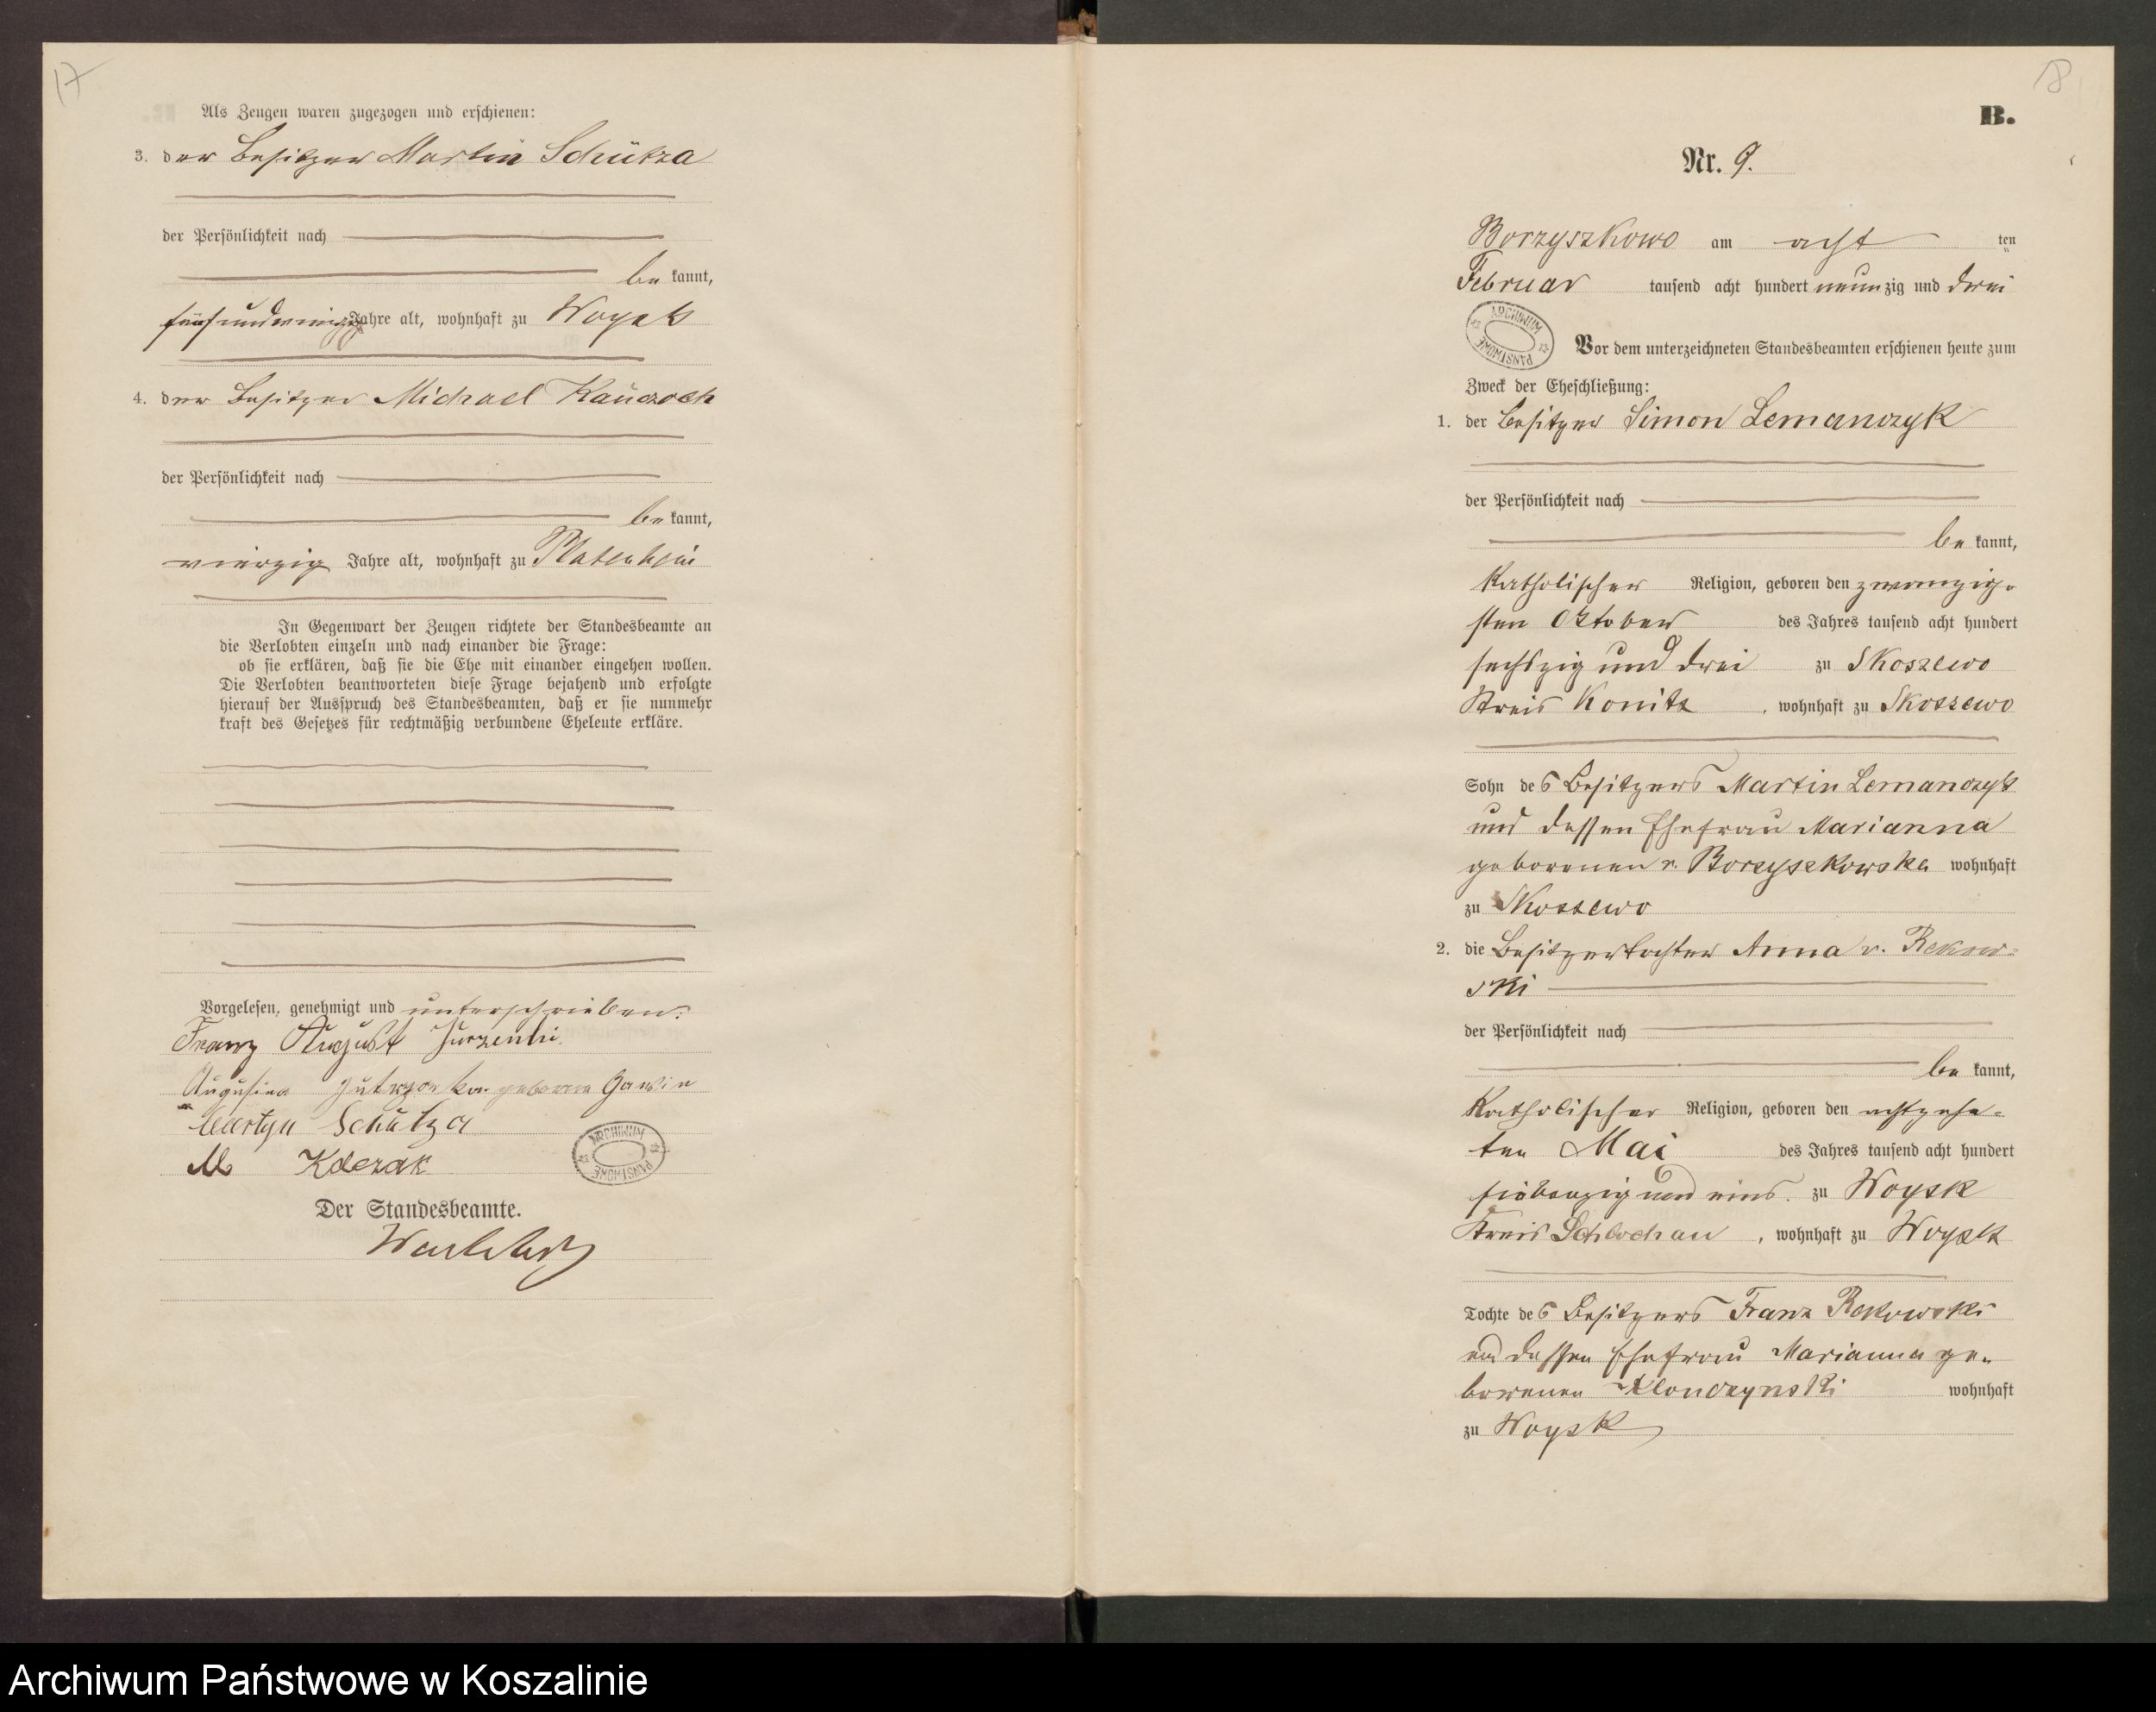 17
Als Zeugen waren zugezogen und erschienen:
3. der Besitzer Martin Schütza
der Persönlichkeit nach
be kannt,
fünfundvierzig Jahre alt, wohnhaft zu Woysk
4. der Besitzer Michael Kauczoch
der Persönlichkeit nach
be kannt,
vierzig Jahre alt, wohnhaft zu Platenheim
In Gegenwart der Zeugen richtete der Standesbeamte an
die Verlobten einzeln und nach einander die Frage:
ob sie erklären, daß sie die Ehe mit einander eingehen wollen.
Die Verlobten beantworteten diese Frage bejahend und erfolgte
hierauf der Ausspruch des Standesbeamten, daß er sie nunmehr
kraft des Gesetzes für rechtmäßig verbundene Eheleute erkläre.
Vorgelesen, genehmigt und unterschrieben.
Franz August
geborene Gawin
Schütza
M
ARCHIWUM PAŃSTWOWE
Der Standesbeamte.
18
B.
Nr. 9.
Borzyszkowo am acht ten
Februar tausend acht hundert neunzig und drei
ARCHIWUM PAŃSTWOWE
Vor dem unterzeichneten Standesbeamten erschienen heute zum
Zweck der Eheschließung:
1. der Besitzer Simon Lemanczyk
der Persönlichkeit nach
be kannt,
katholischer Religion, geboren den zwanzig-
sten Oktober des Jahres tausend acht hundert
sechszig und drei zu Skoszewo
Kreis Konitz, wohnhaft zu Skoszewo
Sohn des Besitzers Martin Lemanczyk
und dessen Ehefrau Marianna
geborenen v. Borzyszkowska wohnhaft
zu Skoszewo
2. die Besitzertochter Anna v. Rekow-
ski
der Persönlichkeit nach
be kannt,
katholischer Religion, geboren den achtzehn-
ten Mai des Jahres tausend acht hundert
siebenzig und eins zu Woysk
Kreis Schlochau, wohnhaft zu Woysk
Tochte des Besitzers Franz Rekowski
und dessen Ehefrau Marianna ge-
borenen Klonczynski wohnhaft
zu Woysk
Archiwum Państwowe w Koszalinie